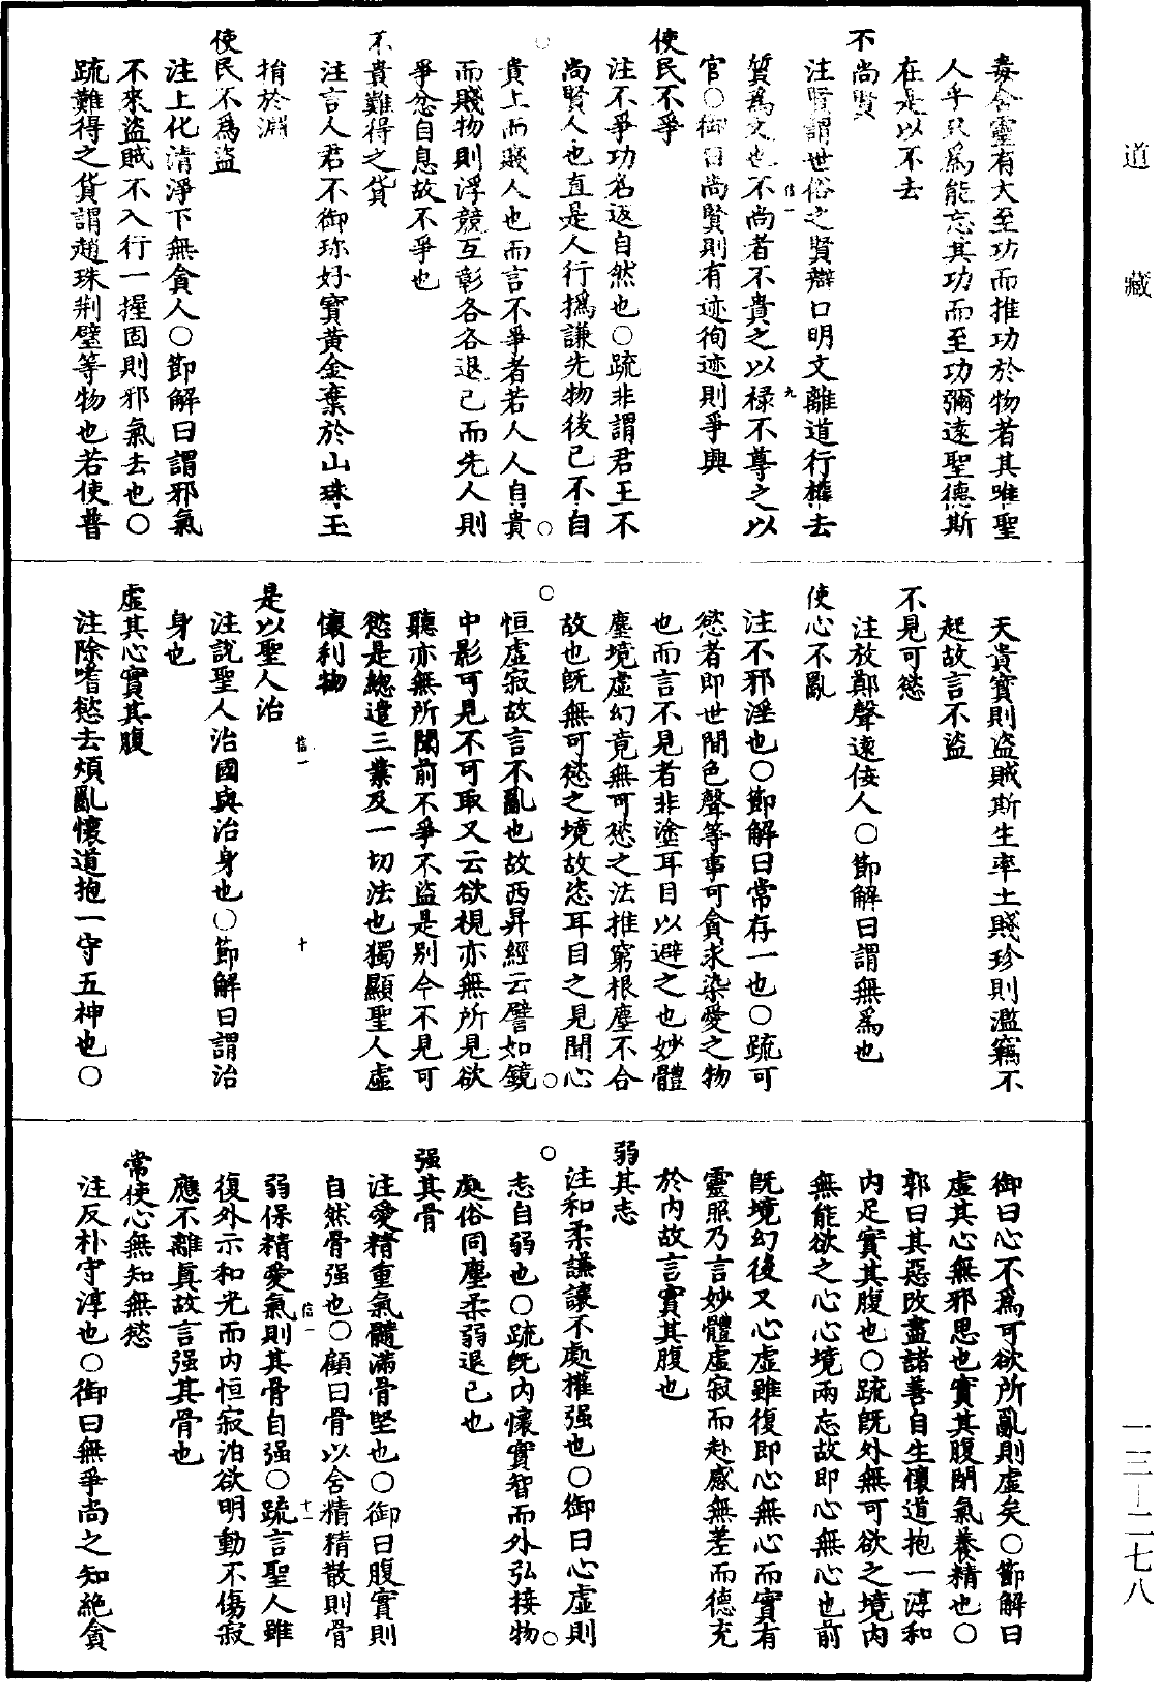 毒含靈有大至功而推功於物者其唯聖
人乎只爲能忘其功而至功彌遠聖德斯
在是以不去
不尚賢
注賢謂世俗之賢辯口明文離道行權去
質爲文也不尚者不貴之以祿不尊之以
官〇御曰尚賢則有迹徇迹則爭興
使民不爭
注不爭功名返自然也〇疏非謂君王不
尚賢人也直是人行撝謙先物後己不自
貴上而賤人也而言不爭者若人人自貴
而賤物則浮競互彰各各退己而先人則
爭忿自息故不爭也
不貴難得之貨
注言人君不御珍好寶黃金棄於山珠玉
捐於淵
使民不爲盜
注上化清淨下無貪人〇節解曰謂邪氣
不來盜賊不入行一握固則邪氣去也〇
疏難得之貨謂趙珠荆璧等物也若使普
天貴寶則盜賊斯生率土賤珍則濫竊不
起故言不盜
不見可慾
注放鄭聲遠佞人〇節解曰謂無爲也
使心不亂
注不邪淫也〇節解曰常存一也〇疏可
慾者即世間色聲等事可貪求染愛之物
也而言不見者非塗耳目以避之也妙體
塵境虛幻竟無可慾之法推窮根塵不合
故也旣無可慾之境故恣耳目之見聞心
恒虛寂故言不亂也故西昇經云譬如鏡
中影可見不可取又云欲視亦無所見欲
聽亦無所聞前不爭不盜是别今不見可
慾是總遣三業及一切法也獨顯聖人虛
懷利物
是以聖人治
注說聖人治國與治身也〇節解曰謂治
身也
虛其心實其腹
注除嗜慾去煩亂懷道抱一守五神也〇
御曰心不爲可欲所亂則虛矣〇節解曰
虛其心無邪思也實其腹閉氣養精也〇
郭曰其惡改盡諸善自生懷道抱一淳和
內足實其腹也〇疏旣外無可欲之境內
無能欲之心心境兩忘故即心無心也前
旣境幻後又心虛雖復即心無心而實有
靈照乃言妙體虛寂而赴感無差而德充
於內故言實其腹也
弱其志
注和柔謙讓不處權强也〇御曰心虛則
志自弱也〇疏旣內懷實智而外弘接物
處俗同塵柔弱退己也
强其骨
注愛精重氣髓滿骨堅也〇御曰腹實則
自然骨强也〇顧曰骨以含精精散則骨
弱保精愛氣則其骨自强〇疏言聖人雖
復外示和光而內恒寂泊欲明動不傷寂
應不離真故言强其骨也
常使心無知無慾
注反朴守淳也〇御曰無爭尚之知絕貪
信一
九
信一
十
信一
十一
道藏
一三—二七八